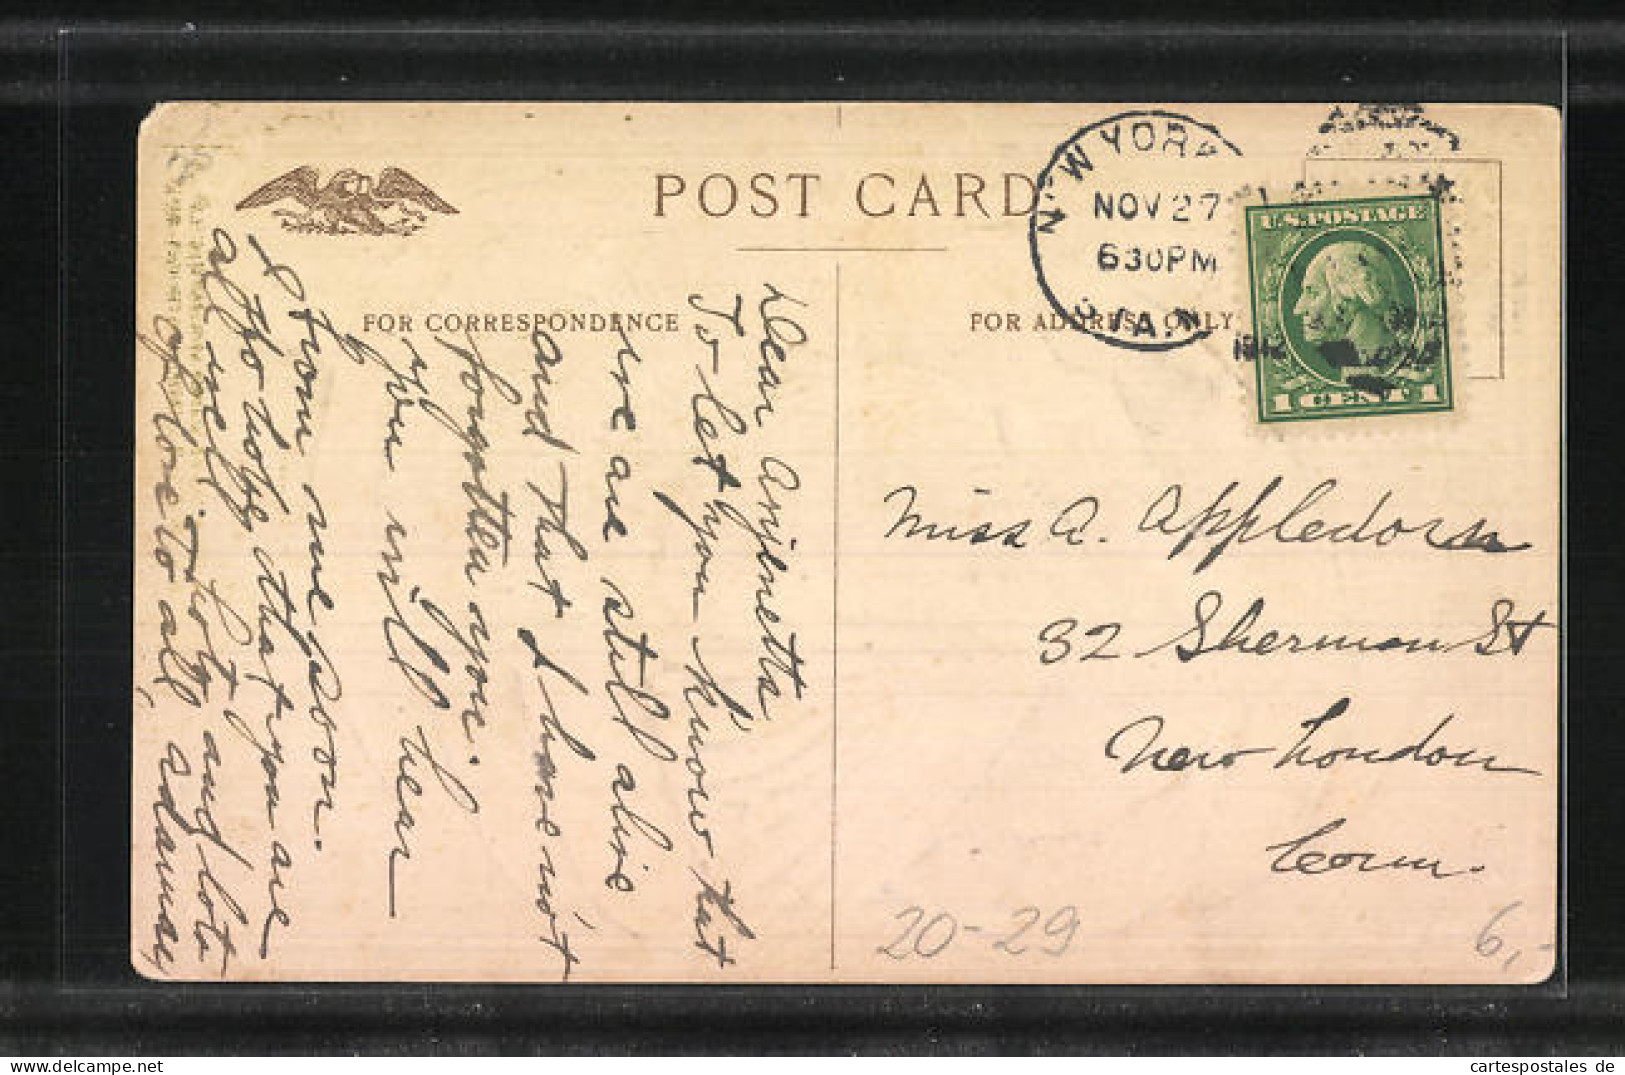 POST CARD
FOR CORRESPONDENCE
FOR ADDRESS ONLY
N.W YORK
NOV 27
630PM
STA.
1912
U.S. POSTAGE
1 CENT 1
Dear Anjenetta
To let you know that
we are still alive
and that I have not
forgotten you.
You will hear
from me soon.
also hope that you are
all well
and lots
of love to all,
Miss A. Appledorn
32 Sherman St
New London
Conn.
20-29
6,-
cartespostales de